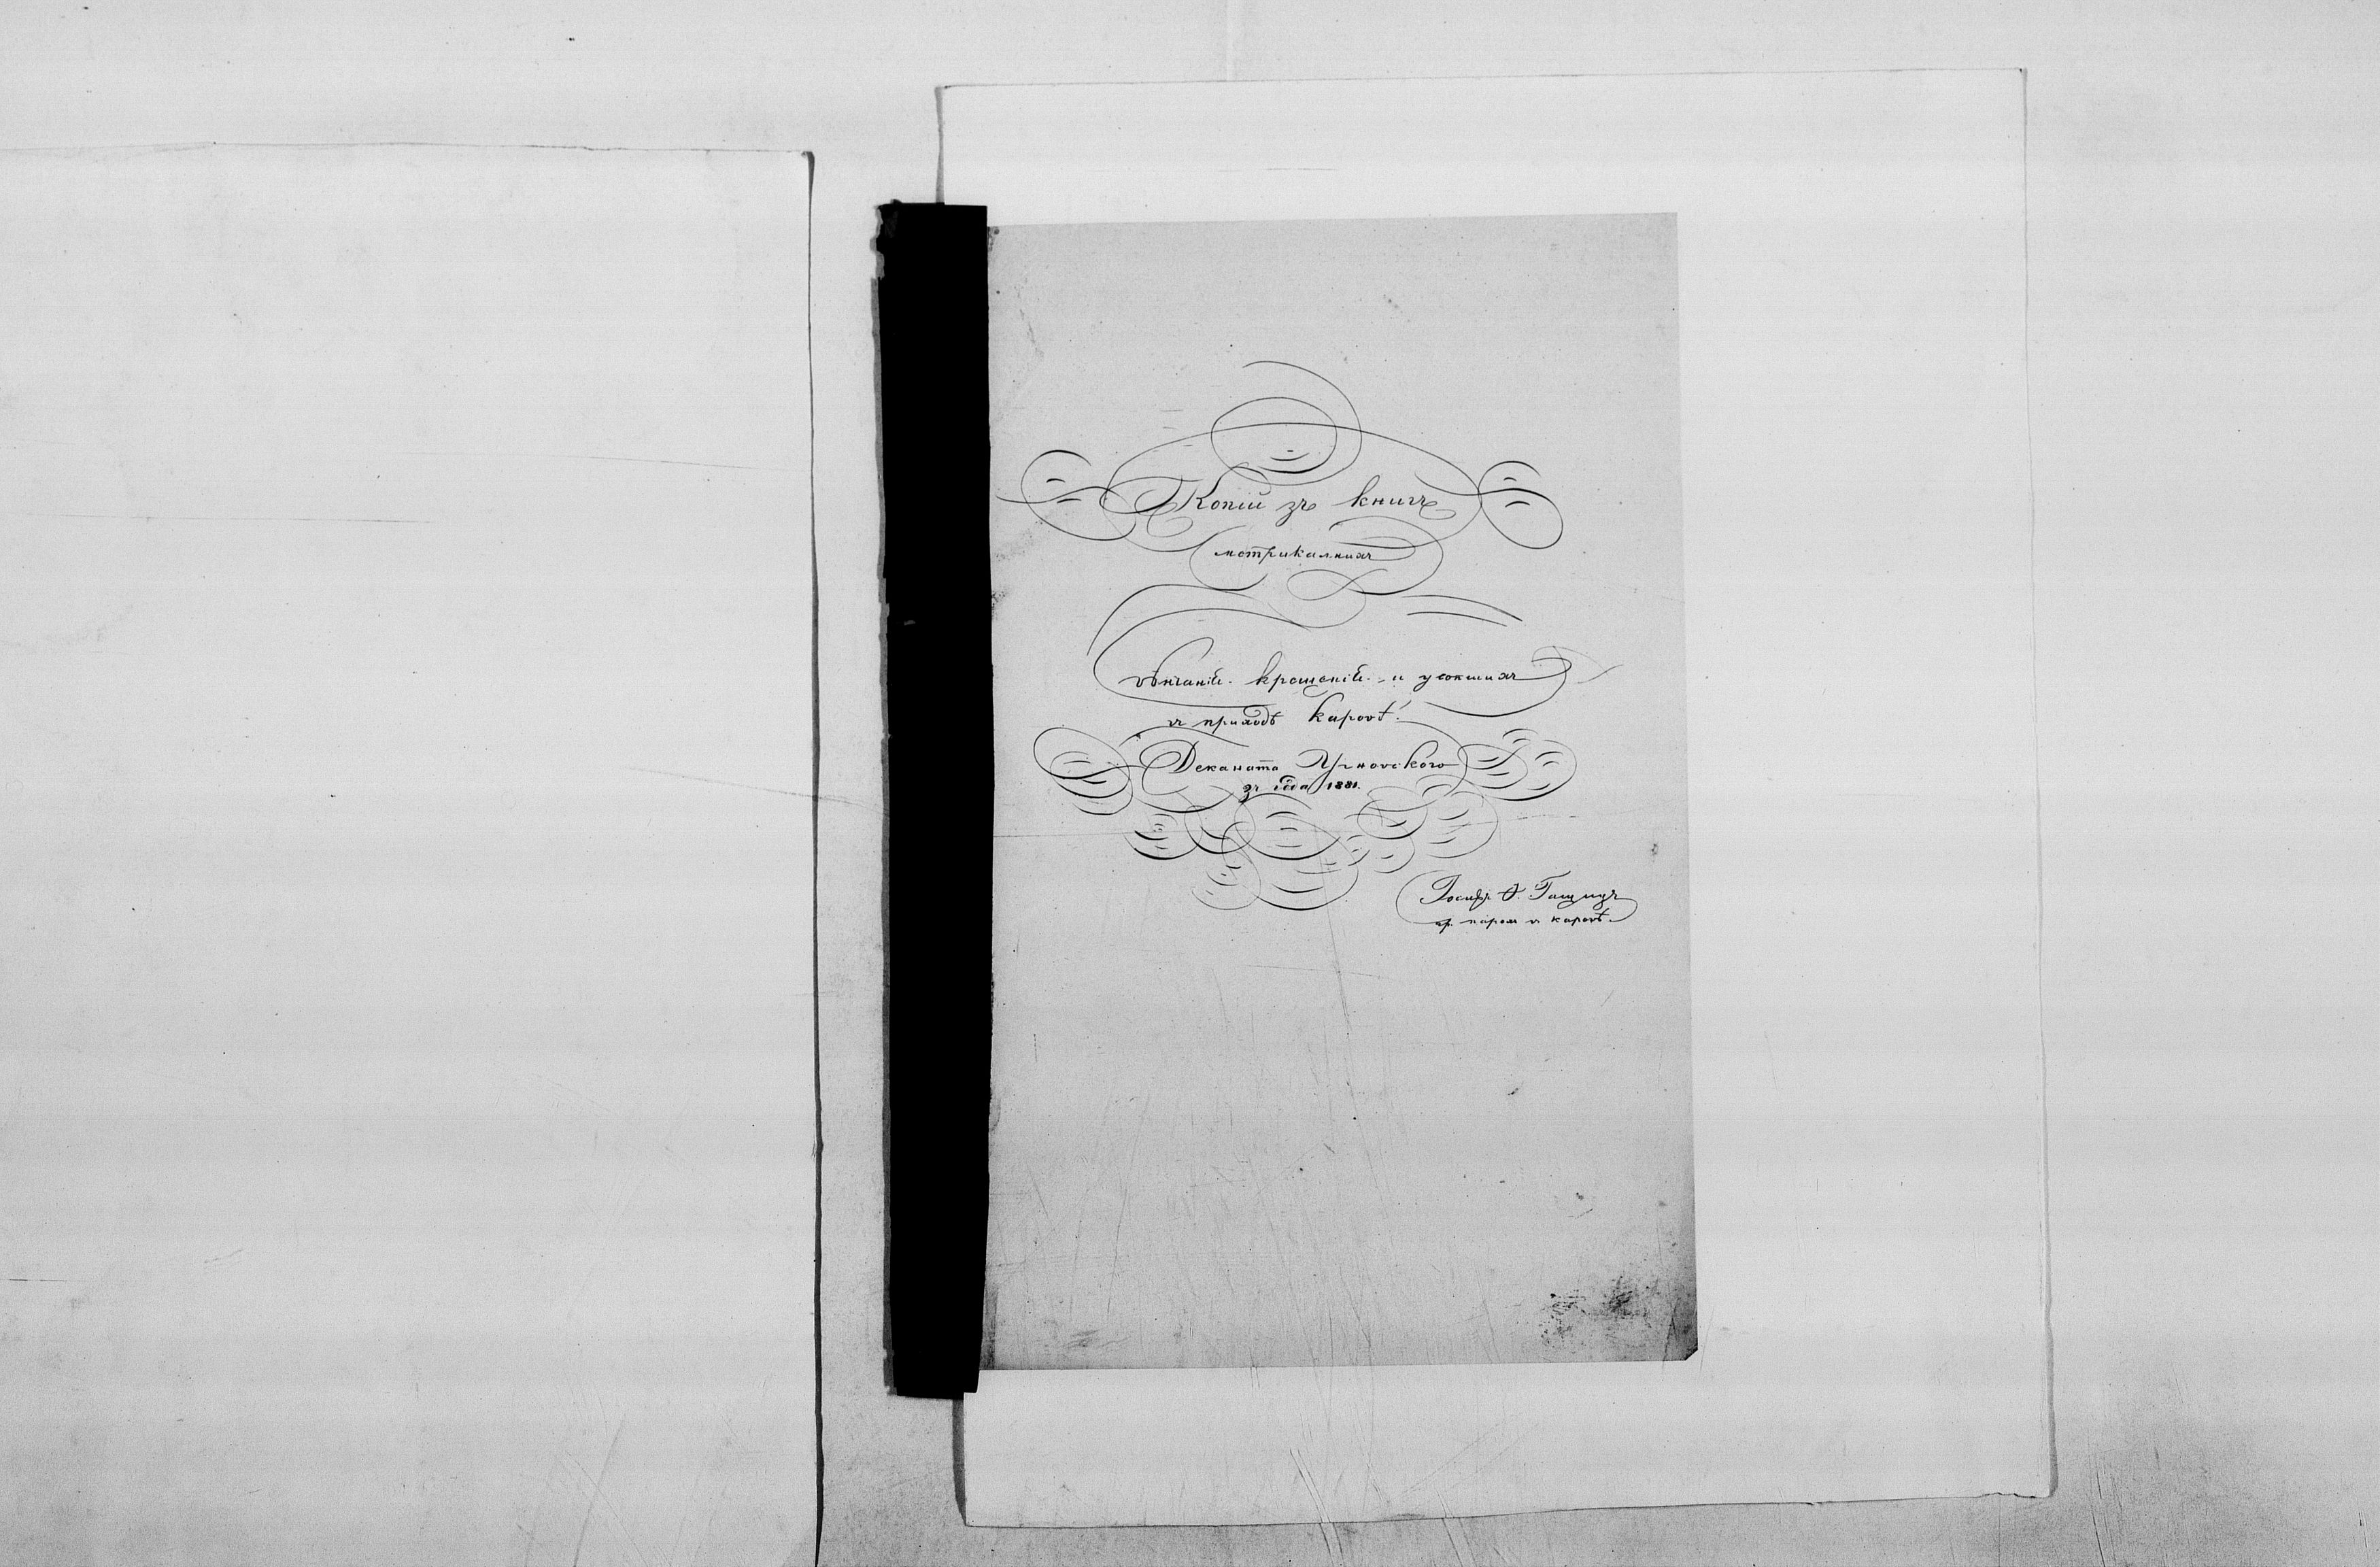 Копіи зъ книгъ
метрикалнихъ
вѣнчаній. крещеній. и усопшихъ
въ приходѣ Каровѣ.
Деканата Угновского
зъ года 1881.
Іосифъ Ѳ.
гр. парох въ Каровѣ.